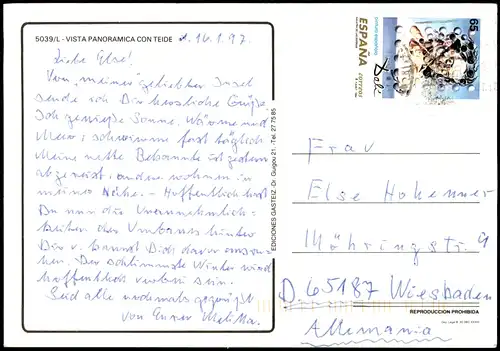 5039/L - VISTA PANORAMICA CON TEIDE
d. 16.1.97.
Liebe Else!
Von "meiner" geliebten Insel
sende ich Dir herzliche Grüße.
Ich genieße Sonne, Wärme und
Meer; schwimme fast täglich.
Meine nette Bekannte ist gestern
abgereist, andere wohnen in
meiner Nähe. - Hoffentlich hast
Du nun die Unannehmlich-
keiten des Umbaus hinter
Dir u. kannst Dich davon ausru-
hen. Der schlimmste Winter wird
hoffentlich vorbei sein.
Seid alle nochmals gegrüßt
von Eurer
EDICIONES GASTEIZ -Dr. Guigou 21. -Tel. 27 75 85
65
ESPAÑA
CORREOS
Dalí
Frau
Else Hohenner
Möhringstr. 9
D. 65187 Wiesbaden
REPRODUCCION PROHIBIDA
Allemania